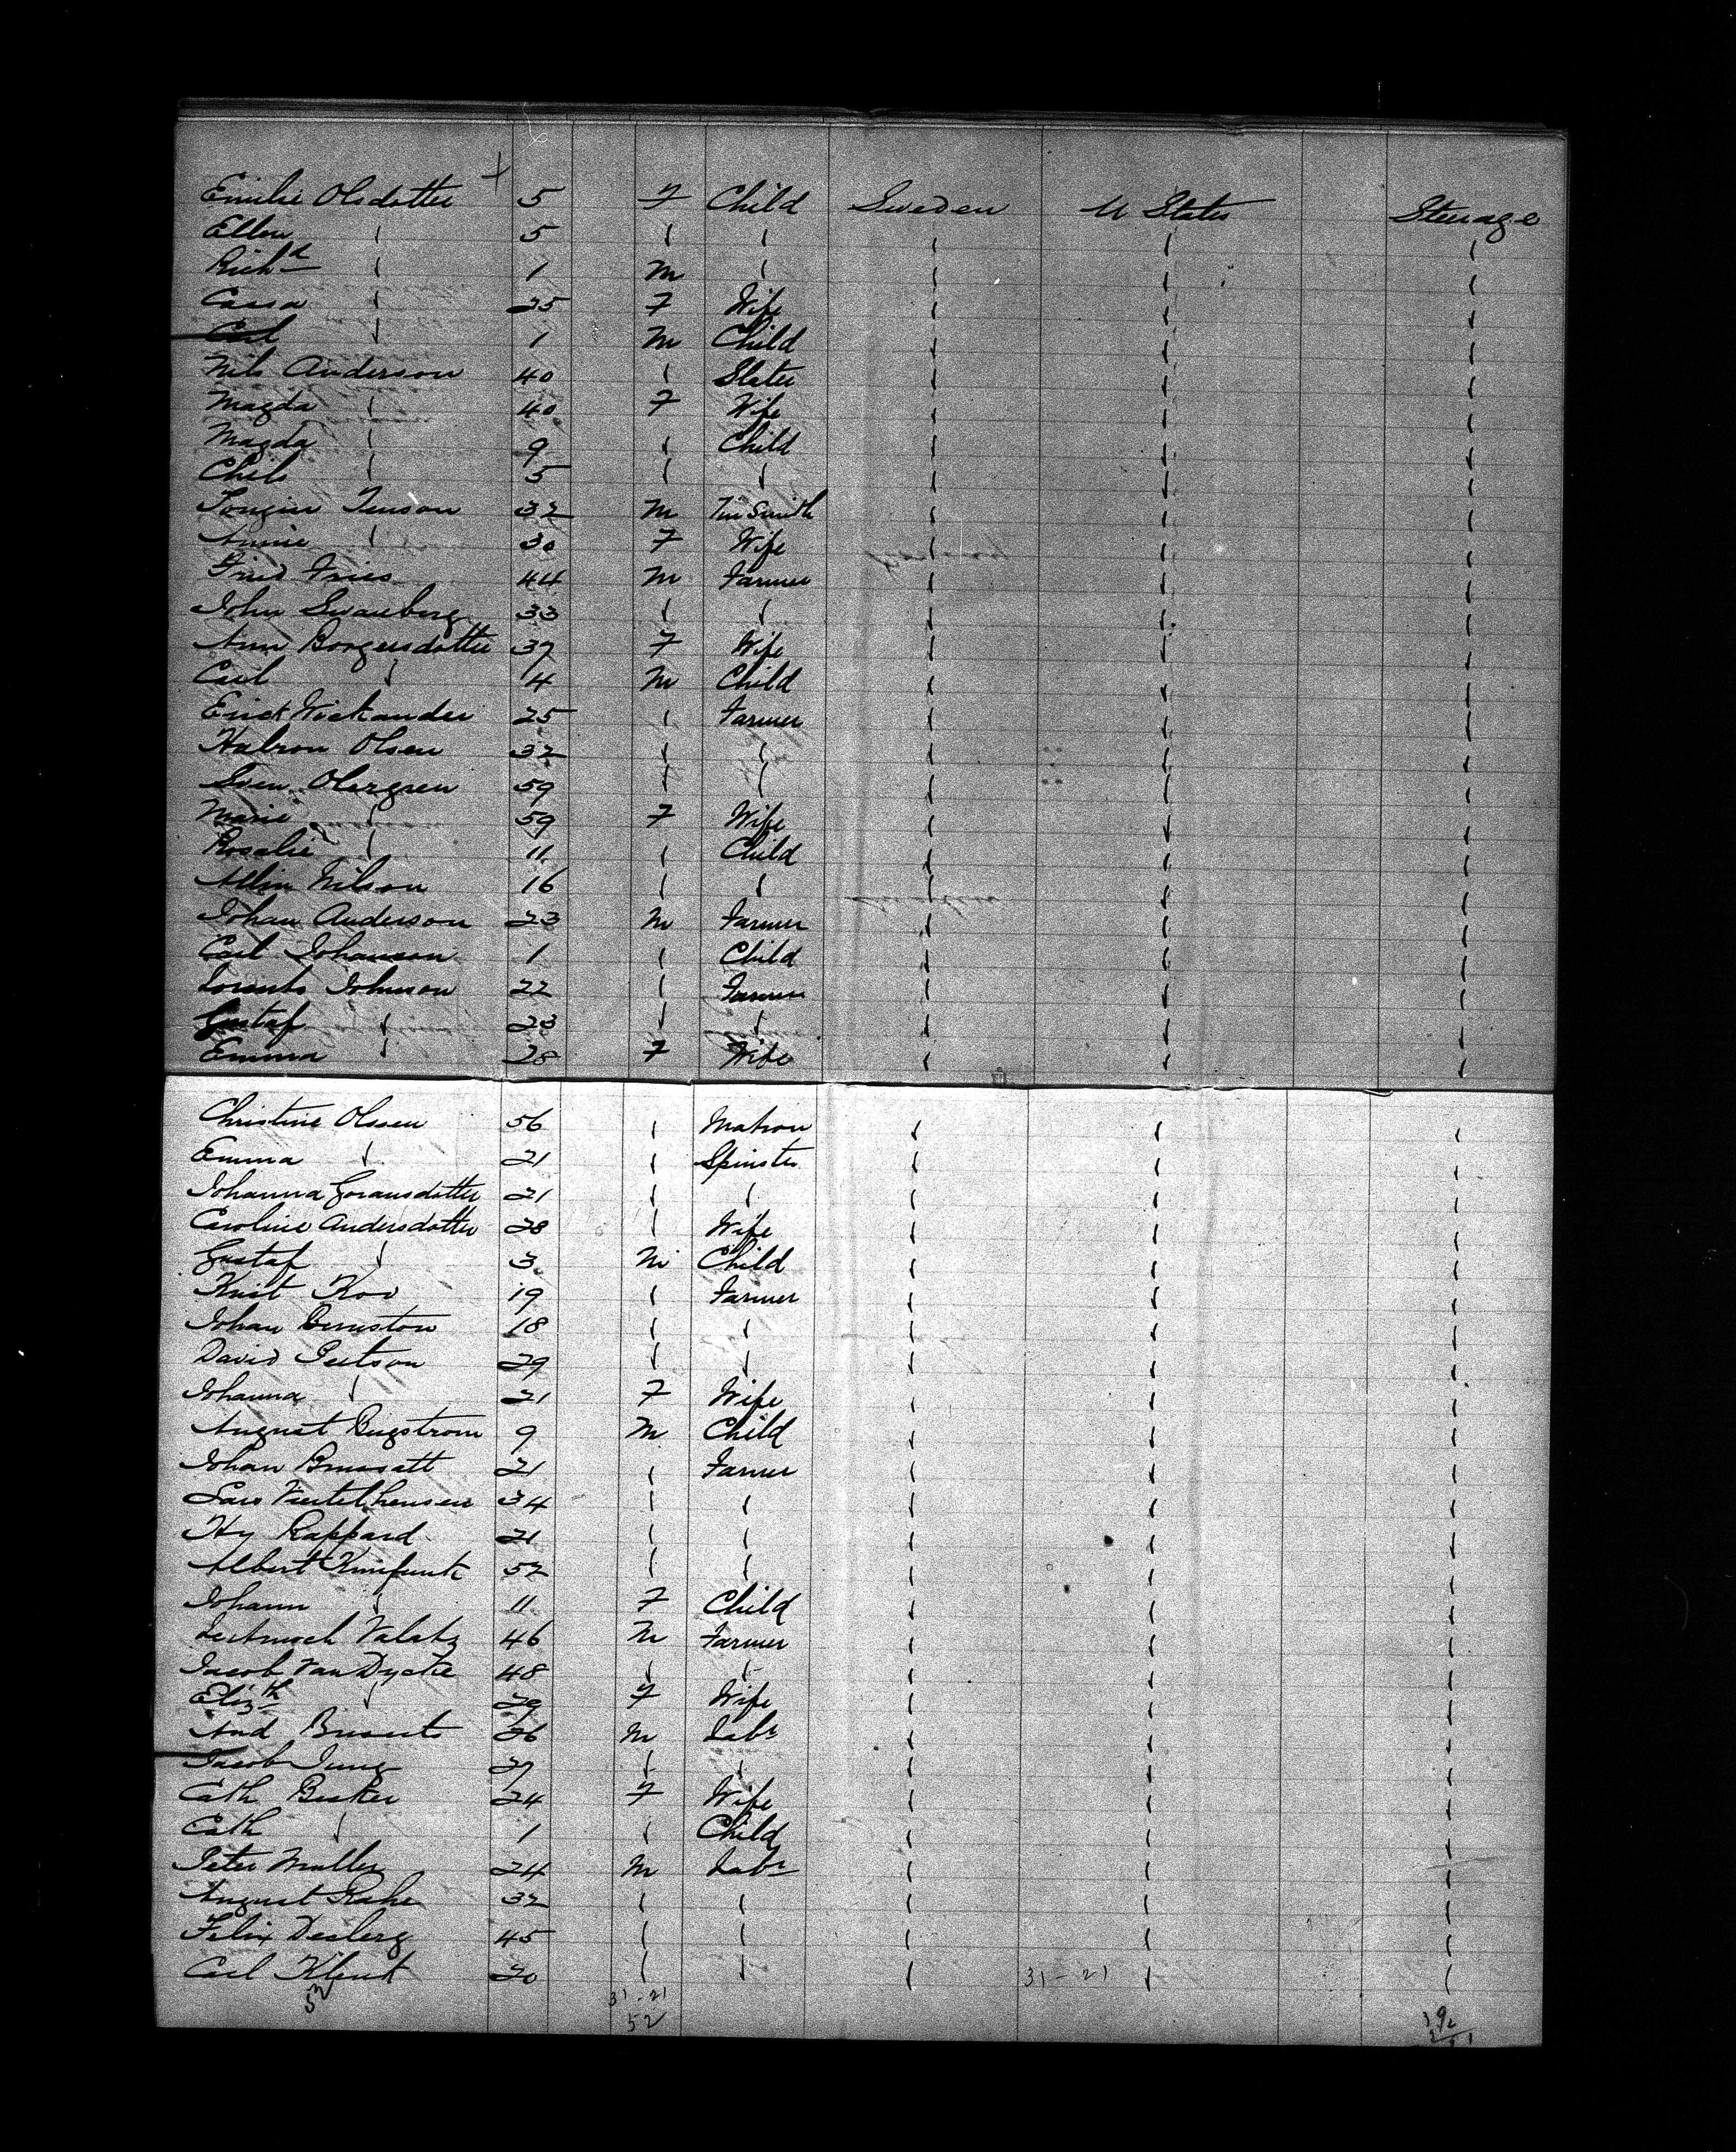 Emilie Olsdotter 5 F Child Sweden U States Steerage
Ellen " 5 " " " " "
Richd " 1 m " " " "
Cassa " 25 F Wife " " "
Carl " 1 m Child " " "
Nils Anderson 40 " Slater " " "
Magda " 40 F Wife " " "
Magda " 9 " Child " " "
Chels " 5 " " " " "
Tenson 32 m Tin Smith " " "
Annie " 30 F Wife " " "
Fries 44 m Farmer " " "
John Swanberg 33 " " " " "
Ann Borgersdotter 37 F Wife " " "
Carl " 4 m Child " " "
Erick Wickander 25 " Farmer " " "
Halvon Olsen 32 " " " " "
Sven Olergren 59 " " " " "
Marie " 59 F Wife " " "
Rosalie " 11 " Child " " "
Allin Nilson 16 " " " " "
Johan Anderson 23 m Farmer " " "
Carl Johanson 1 " Child " " "
Lorents Johnson 22 " Farmer " " "
Gustaf " 23 " " " " "
Emma " 28 F Wife " " "
Christine Olssen 56 " Matron " " "
Emma " 21 " Spinster " " "
Johanna Goransdotter 21 " " " " "
Caroline Andersdotter 28 " Wife " " "
Gustaf " 3 m Child " " "
Knit Koo 19 " Farmer " " "
Johan Bernston 18 " " " " "
David Peetson 29 " " " " "
Johanna " 21 F Wife " " "
August Bugstrom 9 m Child " " "
Johan 21 " Farmer " " "
Lars 34 " " " " "
Hy Rappard 21 " " " " "
Albert 52 " " " " "
Johann " 11 F Child " " "
46 m Farmer " " "
Jacob Van Dycke 48 " " " " "
Elizth " 29 F Wife " " "
And 26 m Labr " " "
Jacob Jung 27 " " " " "
Cath Becker 24 F Wife " " "
Cath " 1 " Child " " "
Peter Muller 24 m Labr " " "
August Rahe 32 " " " " "
Felix Desberg 45 " " " " "
Carl Klent 20 " " " 31-21 " "
52 31-21
52